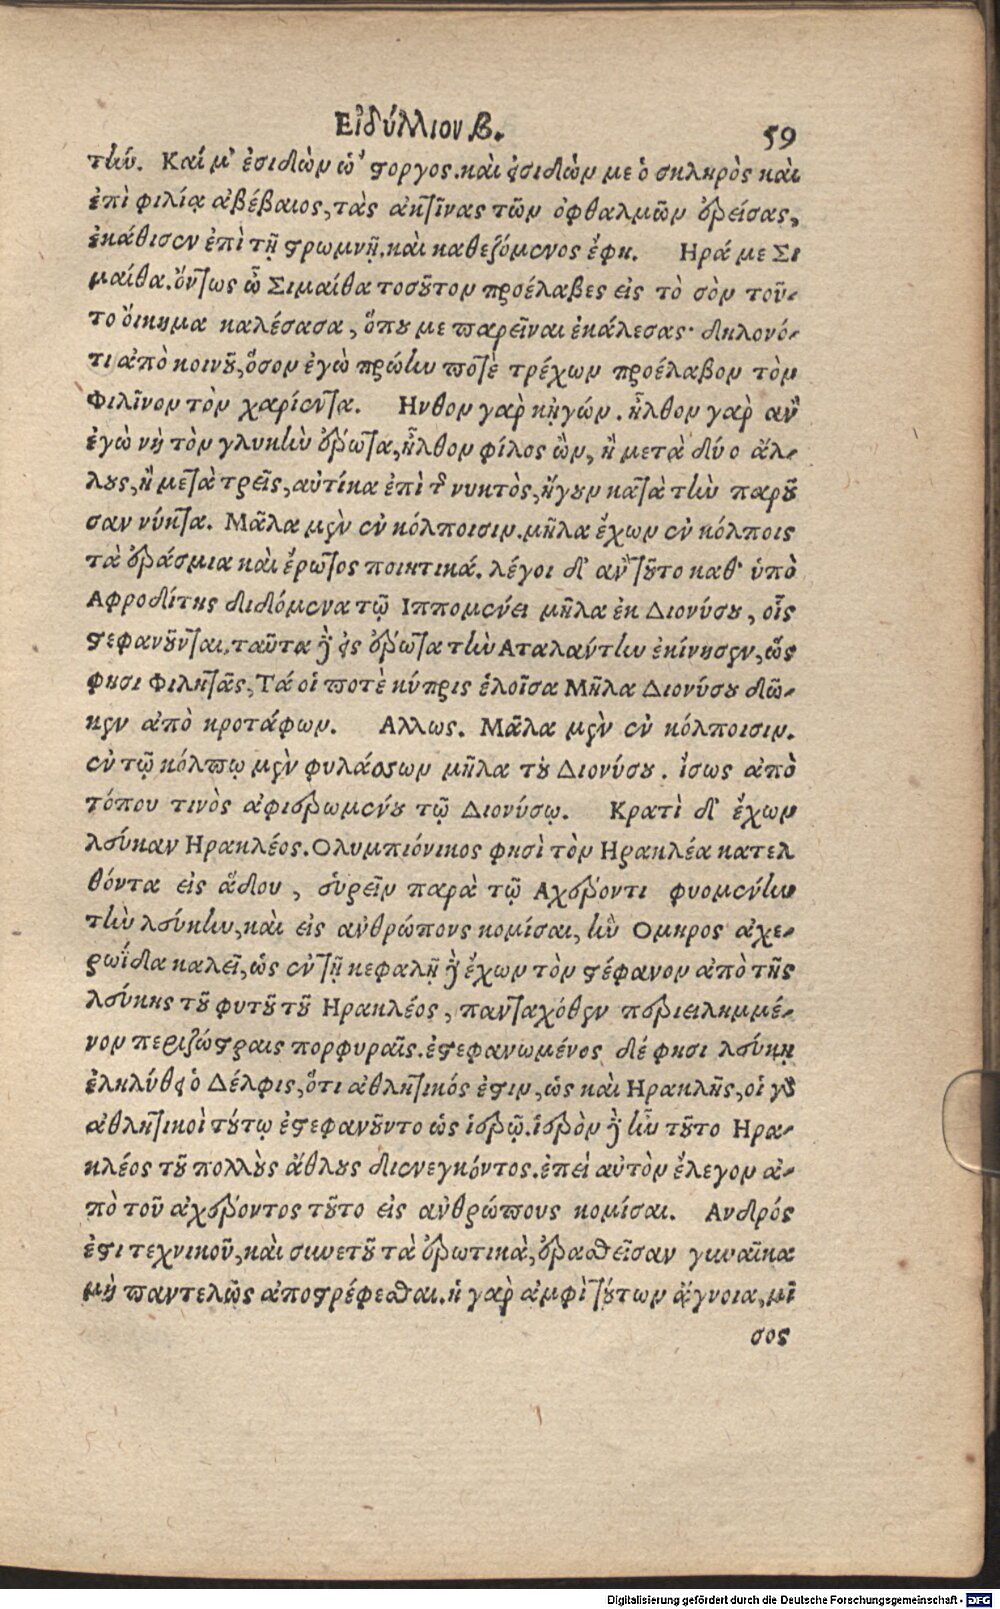 Εἰδύλλιον β.
59
τὴν. Καί μ' ἐσιδὼν ὥ' στοργος. καὶ ἐσιδὼν με ὁ σκληρὸς καὶ
ἐπὶ φιλίᾳ ἀβέβαιος, τὰς ἀκτῖνας τῶν ὀφθαλμῶν ἐρείσας,
ἐκάθισεν ἐπὶ τῇ στρωμνῇ. καὶ καθεζόμενος ἔφη. Ηρά με Σι
μαίθα. ὄντως ὦ Σιμαίθα τοσοῦτον προέλαβες εἰς τὸ σὸν τοῦ-
το ὄικημα καλέσασα, ὅπου με παρεῖναι ἐκάλεσας· δηλονό-
τι ἀπὸ κοινοῦ, ὅσον ἐγὼ πρώην ποτὲ τρέχων προέλαβον τὸν
Φιλῖνον τὸν χαρίεντα. Ηνθον γὰρ κᾐγών. ἦλθον γὰρ ἂν
ἐγὼ νὴ τὸν γλυκὺν ἔρωτα, ἦλθον φίλος ὢν, ἢ μετὰ δύο ἄλ-
λους, ἢ μετὰ τρεῖς, αὐτίκα ἐπὶ τῆς νυκτὸς, ἤγουν κατὰ τὴν παροῦ
σαν νύκτα. Μᾶλα μὲν ἐν κόλποισιν. μῆλα ἔχων ἐν κόλποις
τὰ ἐράσμια καὶ ἔρωτος ποιητικά. λέγοι δ' ἂν τοῦτο καθ' ὑπὸ
Αφροδίτης διδόμενα τῷ Ιππομένει μῆλα ἐκ Διονύσου, οἷς
στεφανοῦνται, ταῦτα γὰρ εἰς ἔρωτα τὴν Αταλάντην ἐκίνησεν, ὥς
φησι Φιλητᾶς, Τά οἱ ποτὲ κύπρις ἑλοῖσα Μῆλα Διονύσου δῶ-
κεν ἀπὸ κροτάφων. Αλλως. Μᾶλα μὲν ἐν κόλποισιν.
ἐν τῷ κόλπῳ μὲν φυλάσσων μῆλα τοῦ Διονύσου. ἴσως ἀπὸ
τόπου τινὸς ἀφιερωμένου τῷ Διονύσῳ. Κρατὶ δ' ἔχων
λεύκαν Ηρακλέος. Ολυμπιόνικος φησὶ τὸν Ηρακλέα κατελ
θόντα εἰς ᾅδου, εὑρεῖν παρὰ τῷ Αχέροντι φυομένην
τὴν λεύκην, καὶ εἰς ἀνθρώπους κομίσαι, ἣν Ομηρος ἀχε-
ρωΐδα καλεῖ, ὡς ἐν τῇ κεφαλῇ γὰρ ἔχων τὸν στέφανον ἀπὸ τῆς
λεύκης τοῦ φυτοῦ τοῦ Ηρακλέος, πανταχόθεν περιειλημμέ-
νον περιζώστραις πορφυραῖς. ἐστεφανωμένος δέ φησι λεύκῃ
ἐληλύθει ὁ Δέλφις, ὅτι ἀθλητικός ἐστιν, ὡς καὶ Ηρακλῆς, οἱ γὰρ
ἀθλητικοὶ τούτῳ ἐστεφανοῦντο ὡς ἱερῷ. ἱερὸν γὰρ ἦν τοῦτο Ηρα-
κλέος τοῦ πολλοὺς ἄθλους διενεγκόντος. ἐπεὶ αὐτὸν ἔλεγον ἀ-
πὸ τοῦ ἀχέροντος τοῦτο εἰς ἀνθρώπους κομίσαι. Ανδρός
ἐστι τεχνικοῦ, καὶ συνετοῦ τὰ ἐρωτικὰ, ἐρασθεῖσαν γυναῖκα
μὴ παντελῶς ἀποστρέφεσθαι. ἡ γὰρ ἀμφὶ τούτων ἄγνοια, μῖ
σος
Digitalisierung gefördert durch die Deutsche Forschungsgemeinschaft - DFG